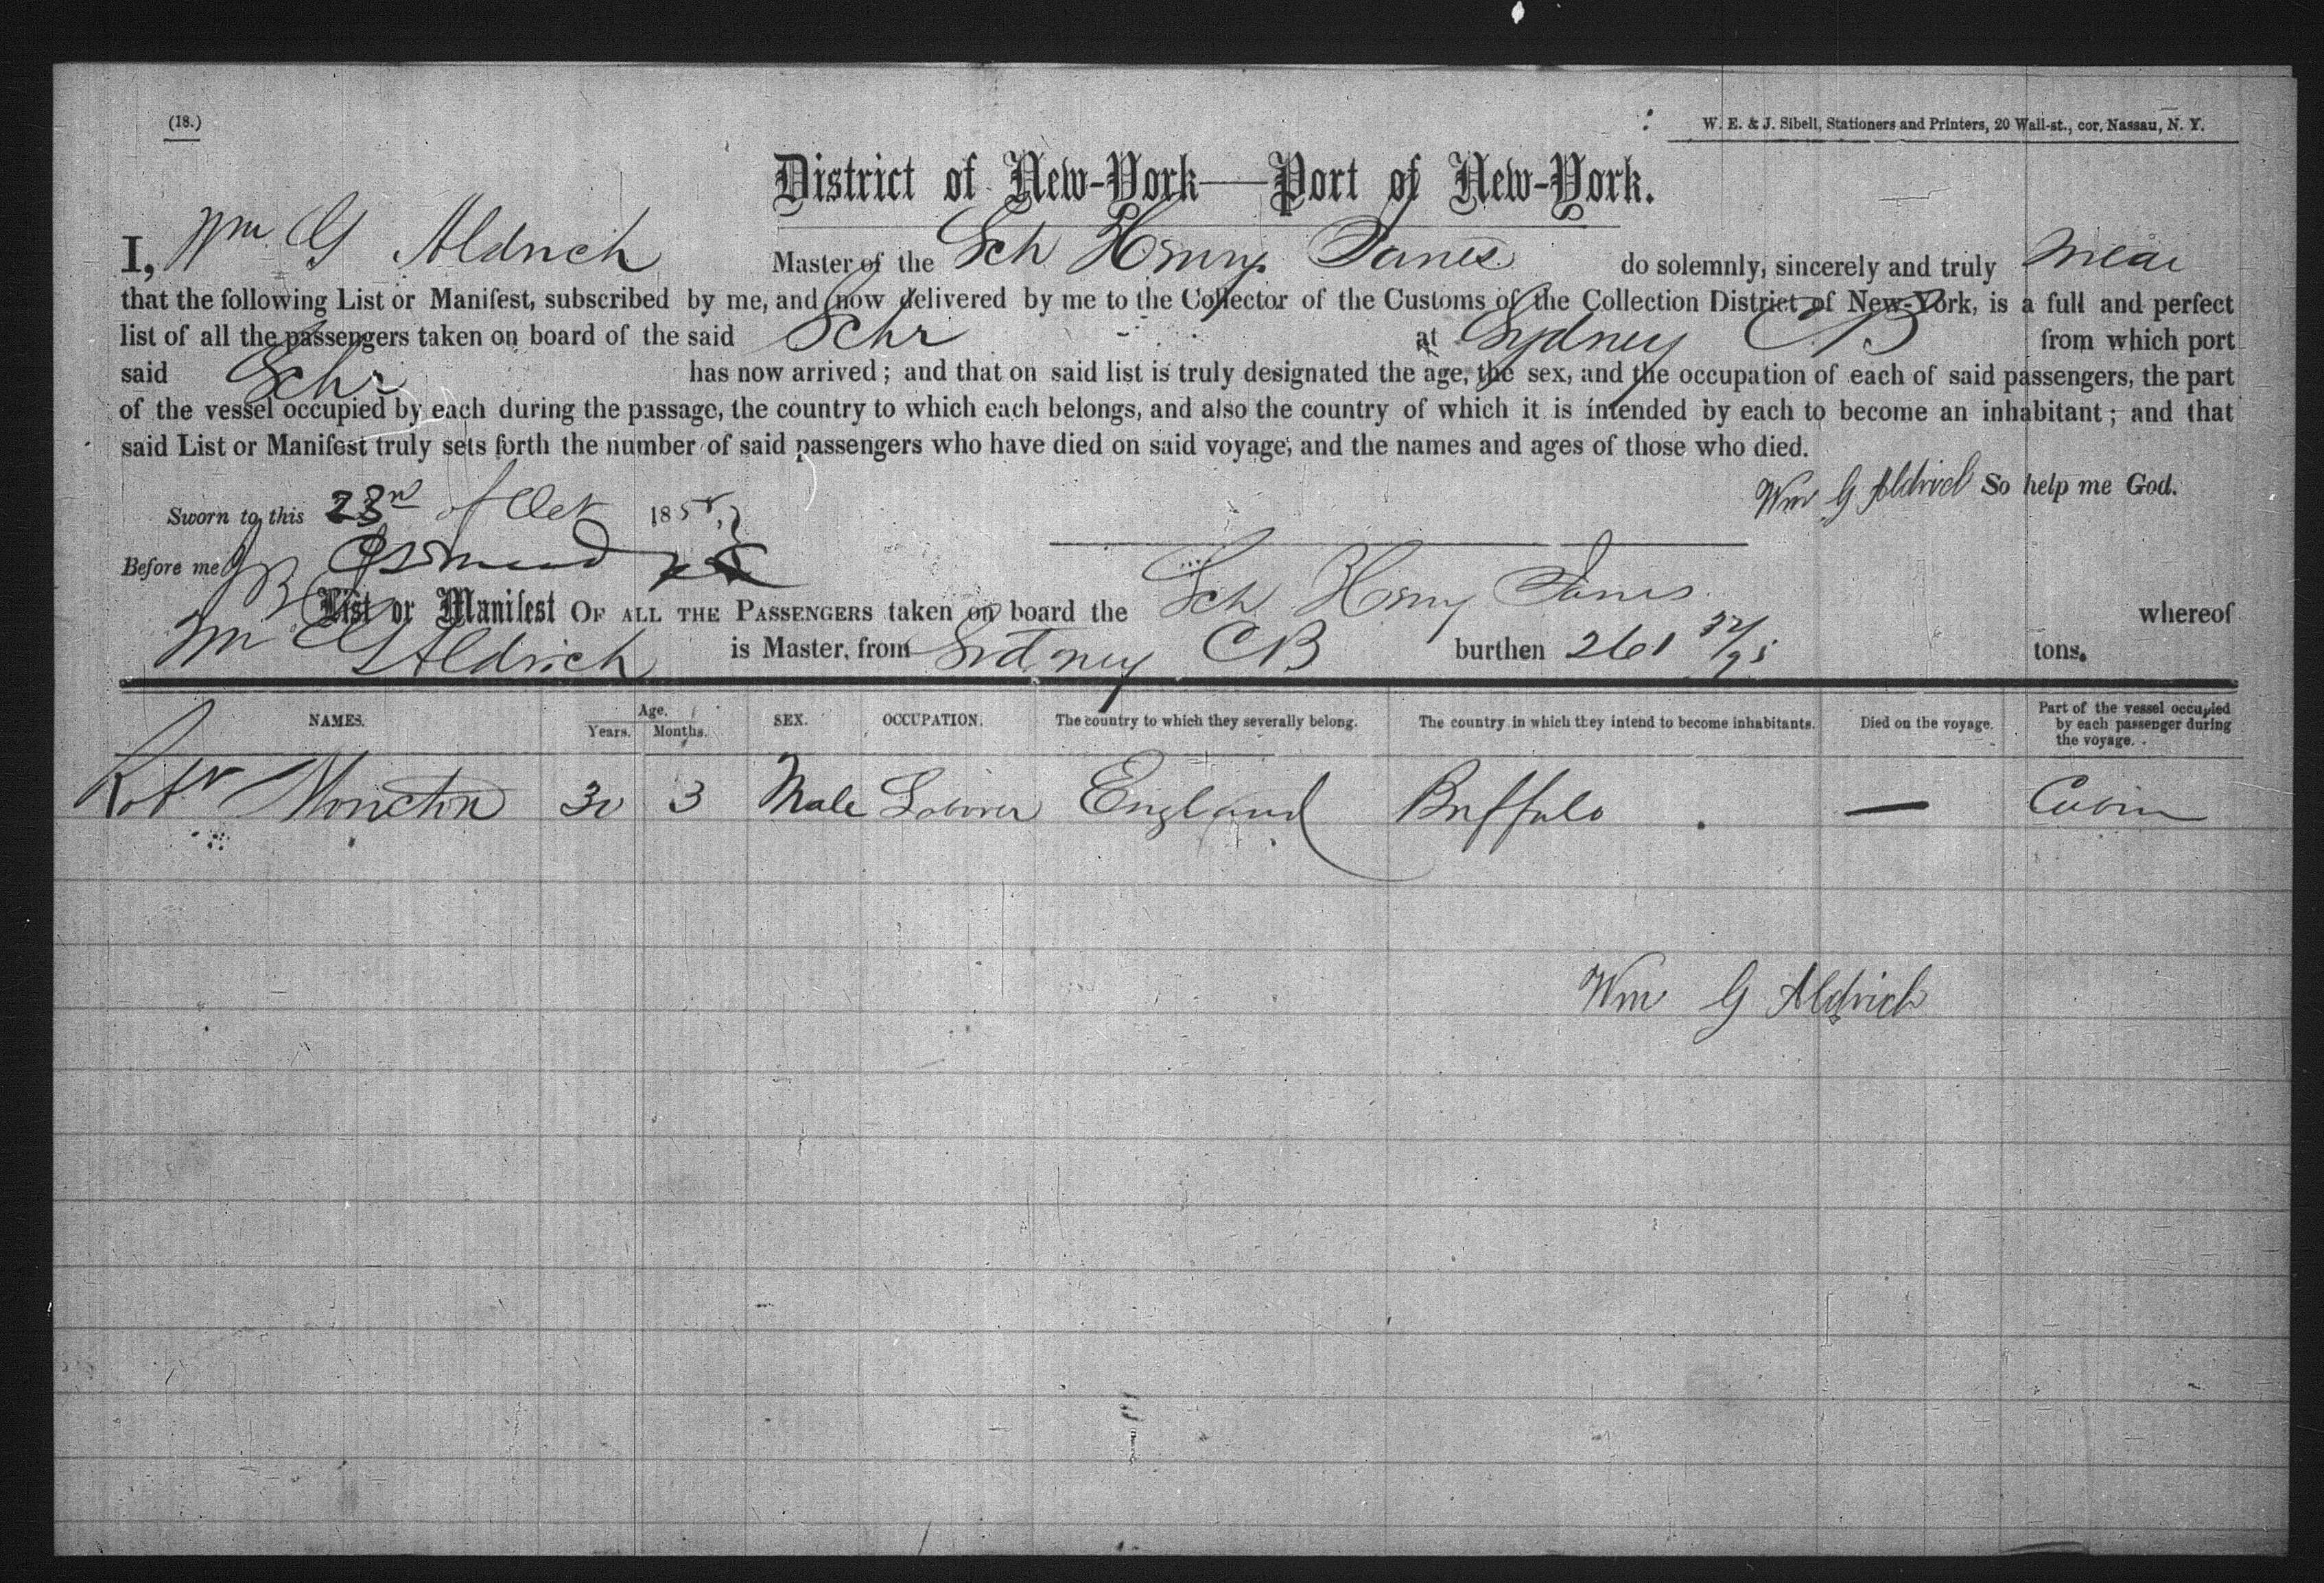 (18.)
W. E. & J. Sibell, Stationers and Printers, 20 Wall-st., cor. Nassau, N. Y.
District of New-York—Port of New-York.
I, Wm G Aldrich Master of the Sch Henry Janes do solemnly, sincerely and truly swear
that the following List or Manifest, subscribed by me, and now delivered by me to the Collector of the Customs of the Collection District of New-York, is a full and perfect
list of all the passengers taken on board of the said Schr at Sydney CB from which port
said Schr has now arrived; and that on said list is truly designated the age, the sex, and the occupation of each of said passengers, the part
of the vessel occupied by each during the passage, the country to which each belongs, and also the country of which it is intended by each to become an inhabitant; and that
said List or Manifest truly sets forth the number of said passengers who have died on said voyage, and the names and ages of those who died.
Wm G Aldrich So help me God.
Sworn to this 23rd of Oct 185
Before me
List or Manifest OF ALL THE PASSENGERS taken on board the Sch Henry Janes whereof
Wm G Aldrich is Master, from Sidney CB burthen 261 32/95 tons.
NAMES. Age. Years. Months. SEX. OCCUPATION. The country to which they severally belong. The country in which they intend to become inhabitants. Died on the voyage. Part of the vessel occupied by each passenger during the voyage.
Robt Moncton 30 3 Male Laborer England Buffalo — Cabin
Wm G Aldrich